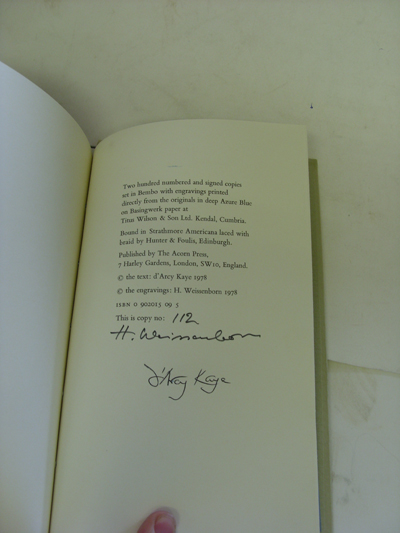 Two hundred numbered and signed copies
set in Bembo with engravings printed
directly from the originals in deep Azure Blue
on Basingwerk paper at
Titus Wilson & Son Ltd. Kendal, Cumbria.
Bound in Strathmore Americana laced with
braid by Hunter & Foulis, Edinburgh.
Published by The Acorn Press,
7 Harley Gardens, London, SW10, England.
© the text: d'Arcy Kaye 1978
© the engravings: H. Weissenborn 1978
ISBN 0 902015 09 5
This is copy no: 112
H. Weissenborn
d'Arcy Kaye